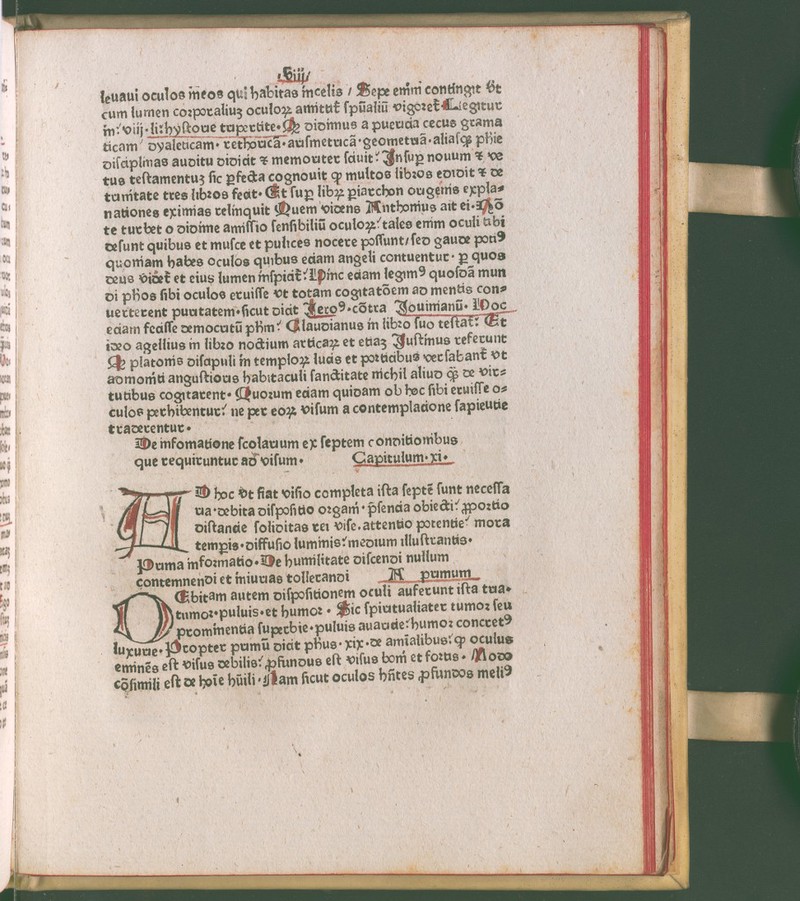 Siij
leuaui oculos meos qui habitas in celis / Sepe enim contingit vt
cum lumen corporaliuʒ oculoꝝ amittit̄ spūaliū vigoret᷑ Legitur
in: viij · li: hystorie tripertite · Ꝙ didimus a puericia cecus grama
ticam dyaleticam · rethoricā · arismetricā · geometriā · aliasqꝫ phie
disciplinas auditu didicit ⁊ memoriter sciuit: Insuꝑ nouum ⁊ ve
tus testamentuʒ sic ꝑfecta cognouit ꝙ multos libros edidit ⁊ de
trinitate tres libros fecit · Et suꝑ libꝝ piarchon origenis expla-
nationes eximias relinquit Quem videns Anthonius ait ei · Nō
te turbet o didime amissio sensibiliū oculoꝝ: tales enim oculi tibi
desunt quibus et musce et pulices nocere possunt / sed gaude potiꝰ
quoniam habes oculos quibus eciam angeli contuentur · ꝑ quos
deus videt᷑ et eius lumen inspicit᷑: Hinc eciam legimꝰ quosdā mun
di phos sibi oculos eruisse vt totam cogitatōem ad mentis con-
uerterent puritatem · sicut dicit Jeroꝰ · cōtra Jouinianū · Hoc
eciam fecisse democritū phm: Claudianus in libro suo testat᷑: Et
ideo agellius in libro noctium atticaꝝ et etiaʒ Justinus referunt
Ꝙ platonis discipuli in temploꝝ lucis et porticibus versabant᷑ vt
admoniti angustioris habitaculi sanctitate nichil aliud qꝫ̄ de vir-
tutibus cogitarent · Quorum eciam quidam ob hoc sibi eruisse o-
culos perhibentur: ne per eoꝝ visum a contemplacione sapientie
traderentur ·
De informatione scolarium ex septem conditionibus
que requiruntur ad visum · Capitulum · xi ·
AD hoc vt fiat visio completa ista septē sunt necessa
ria · debita dispositio organi · p̄sencia obiecti: ꝓportio
distancie soliditas rei vise · attentio potentie: mora
temꝑis · diffusio luminis: medium illustrantis ·
Prima informatio · De humilitate discendi nullum
contemnendi et iniurias tollerandi A primum
DEbitam autem dispositionem oculi auferunt ista tria ·
tumor · puluis · et humor · Sic spiritualiater tumor seu
prominentia superbie · puluis auaricie: humor concretꝰ
luxurie · Propter primū dicit phus · xix · de aīalibus: ꝙ oculus
eminēs est visus debilis: ꝓfundus est visus boni et fortis · Modo
cōsimili est de hoīe hūili · Nam sicut oculos hn̄tes ꝓfundos meliꝰ